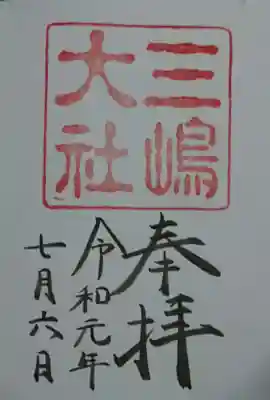 三嶋
大社
奉拝
令和元年
七月六日